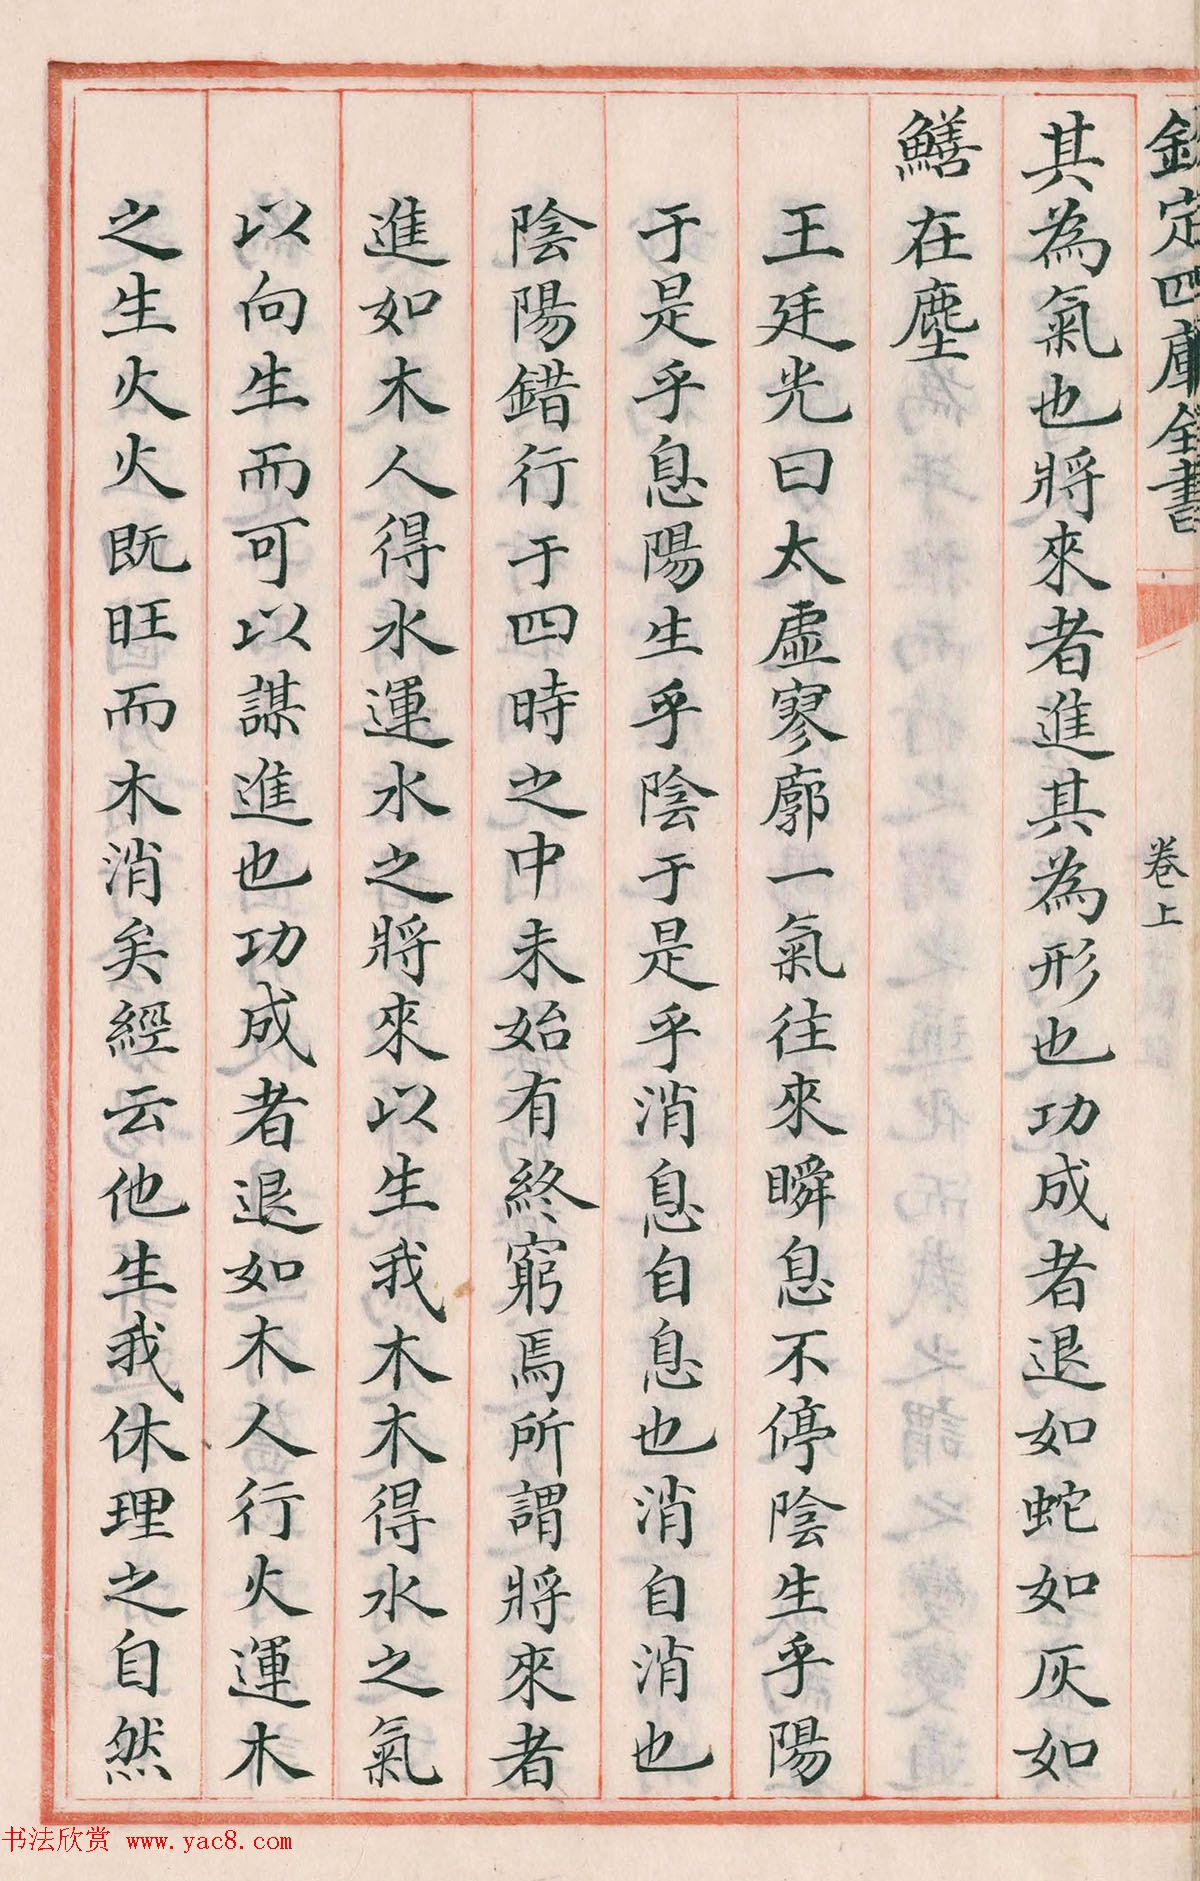 欽定四庫全書
卷上
其為氣也將來者進其為形也功成者退如蛇如灰如
鱔在塵
王廷光曰太虛寥廓一氣往來瞬息不停陰生乎陽
于是乎息陽生乎陰于是乎消息自息也消自消也
陰陽錯行于四時之中未始有終窮焉所謂將來者
進如木人得水運水之將來以生我木木得水之氣
以向生而可以謀進也功成者退如木人行火運木
之生火火既旺而木消矣經云他生我休理之自然
书法欣赏 www.yac8.com